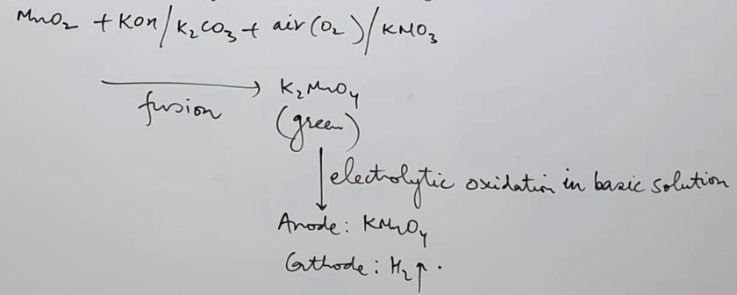 MnO₂ + KOH/K₂CO₃ + air (O₂)/KNO₃
fusion
K₂MnO₄
(green)
electrolytic oxidation in basic solution
Anode: KMnO₄
Cathode: H₂↑.